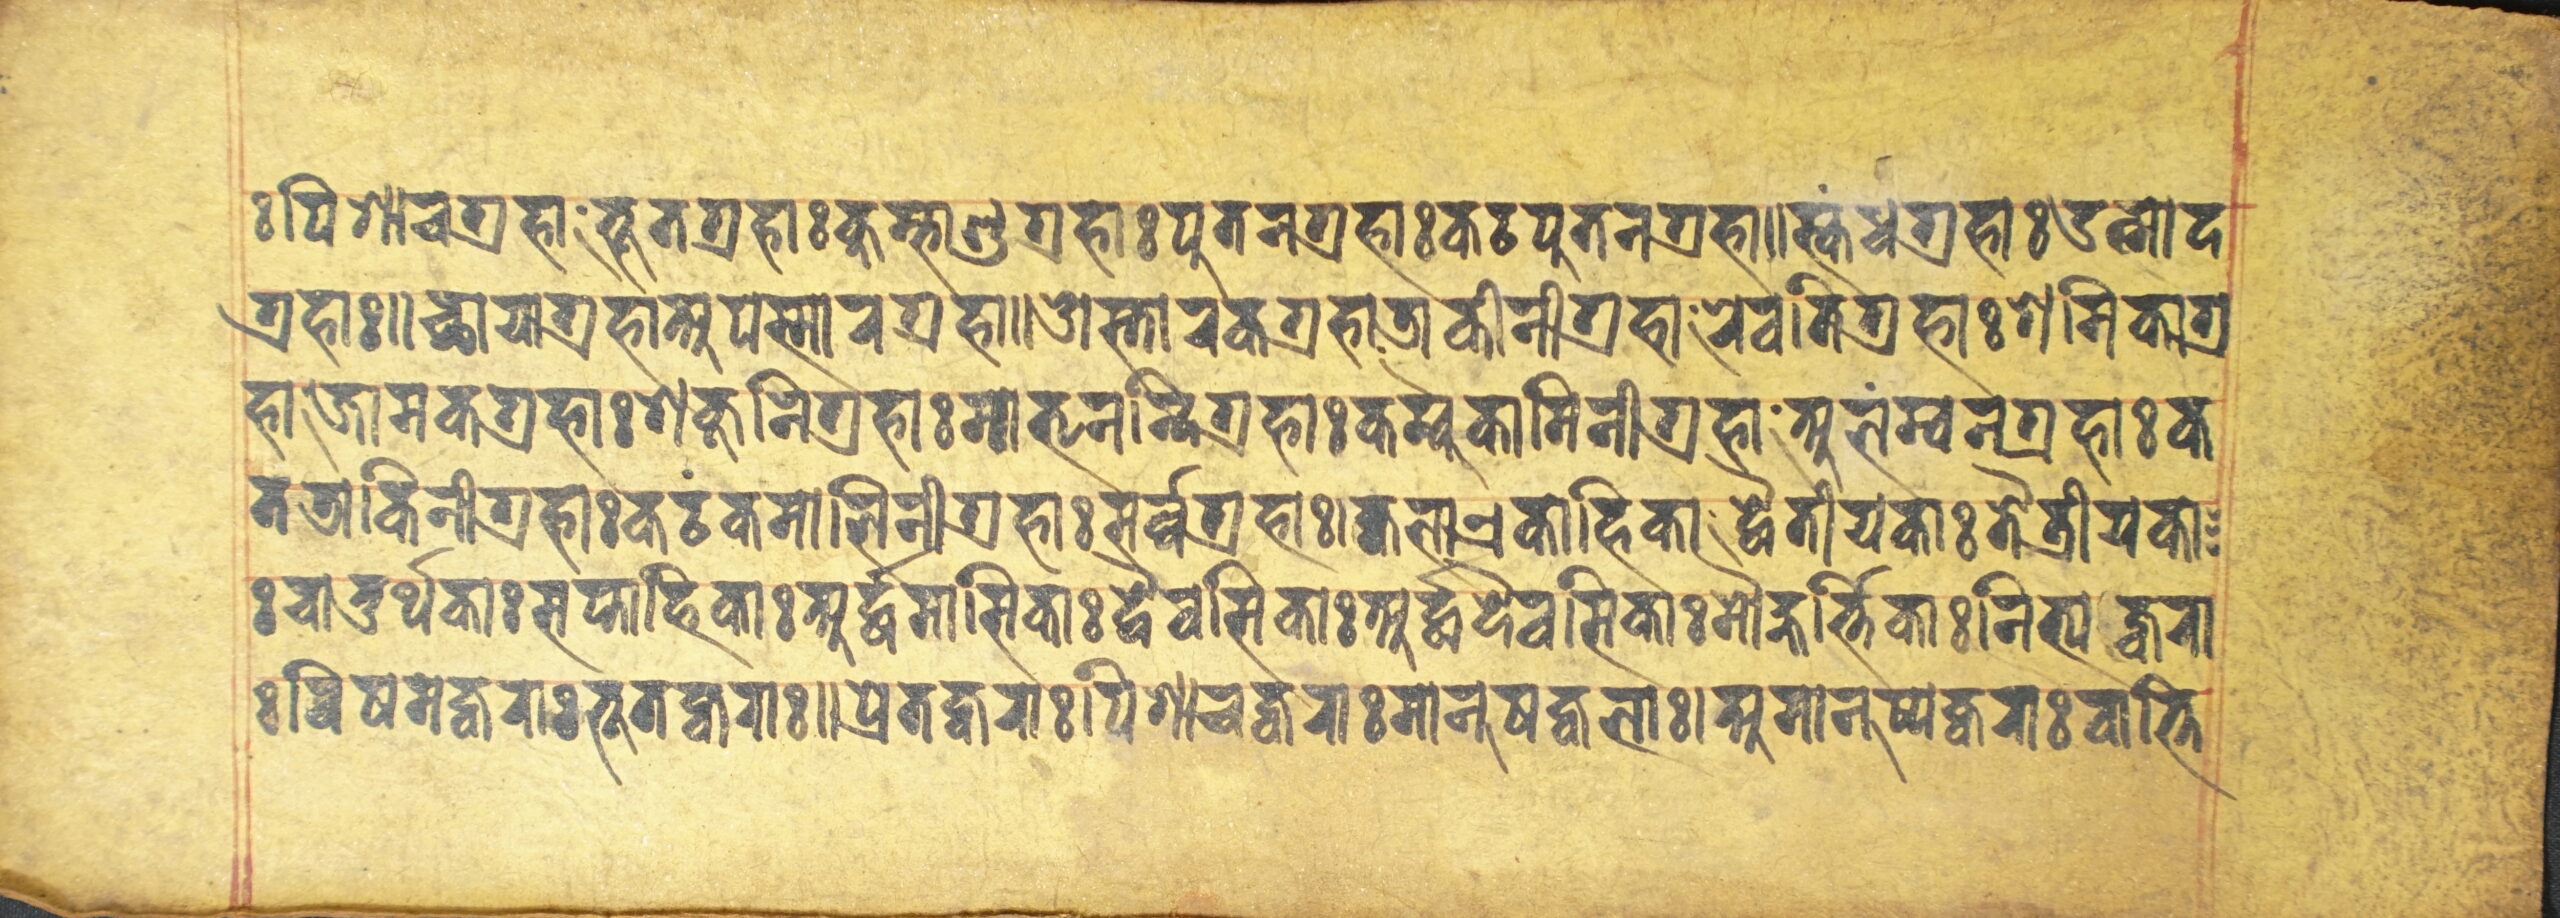 ः पिशाचग्रहाः भूतग्रहाः कुम्भाण्डग्रहाः पुतनग्रहाः कटपुतनग्रहा॥ स्कंधग्रहाः उत्मोद
ग्रहाः॥ च्छायाग्रहा अपस्मारग्रहा॥ ओस्तारकग्रहा डाकीनीग्रहाः रेवतिग्रहाः शमिकाग्र
हा जामकग्रहाः शकुनिग्रहाः मातृनन्दिग्रहाः कम्बुकामिनीग्रहाः अलंम्बनग्रहाः क
तडाकिनीग्रहाः कटंकमालिनीग्रहाः सर्व्वग्रहाः। ज्वला एकाहिकाः द्वैतीयकाः तैत्रीयका
ः चातुर्थकाः सप्ताहिकाः अर्द्धमासिकाः द्वैवसिकाः अर्द्धदैवसिकाः मौहूर्त्तिकाः नित्यज्वरा
ः विषमज्वराः भूतज्वराः॥ प्रेतज्वराः पिशाचज्वराः मानुषज्वलाः। अमानुष्यज्वराः वात्ति